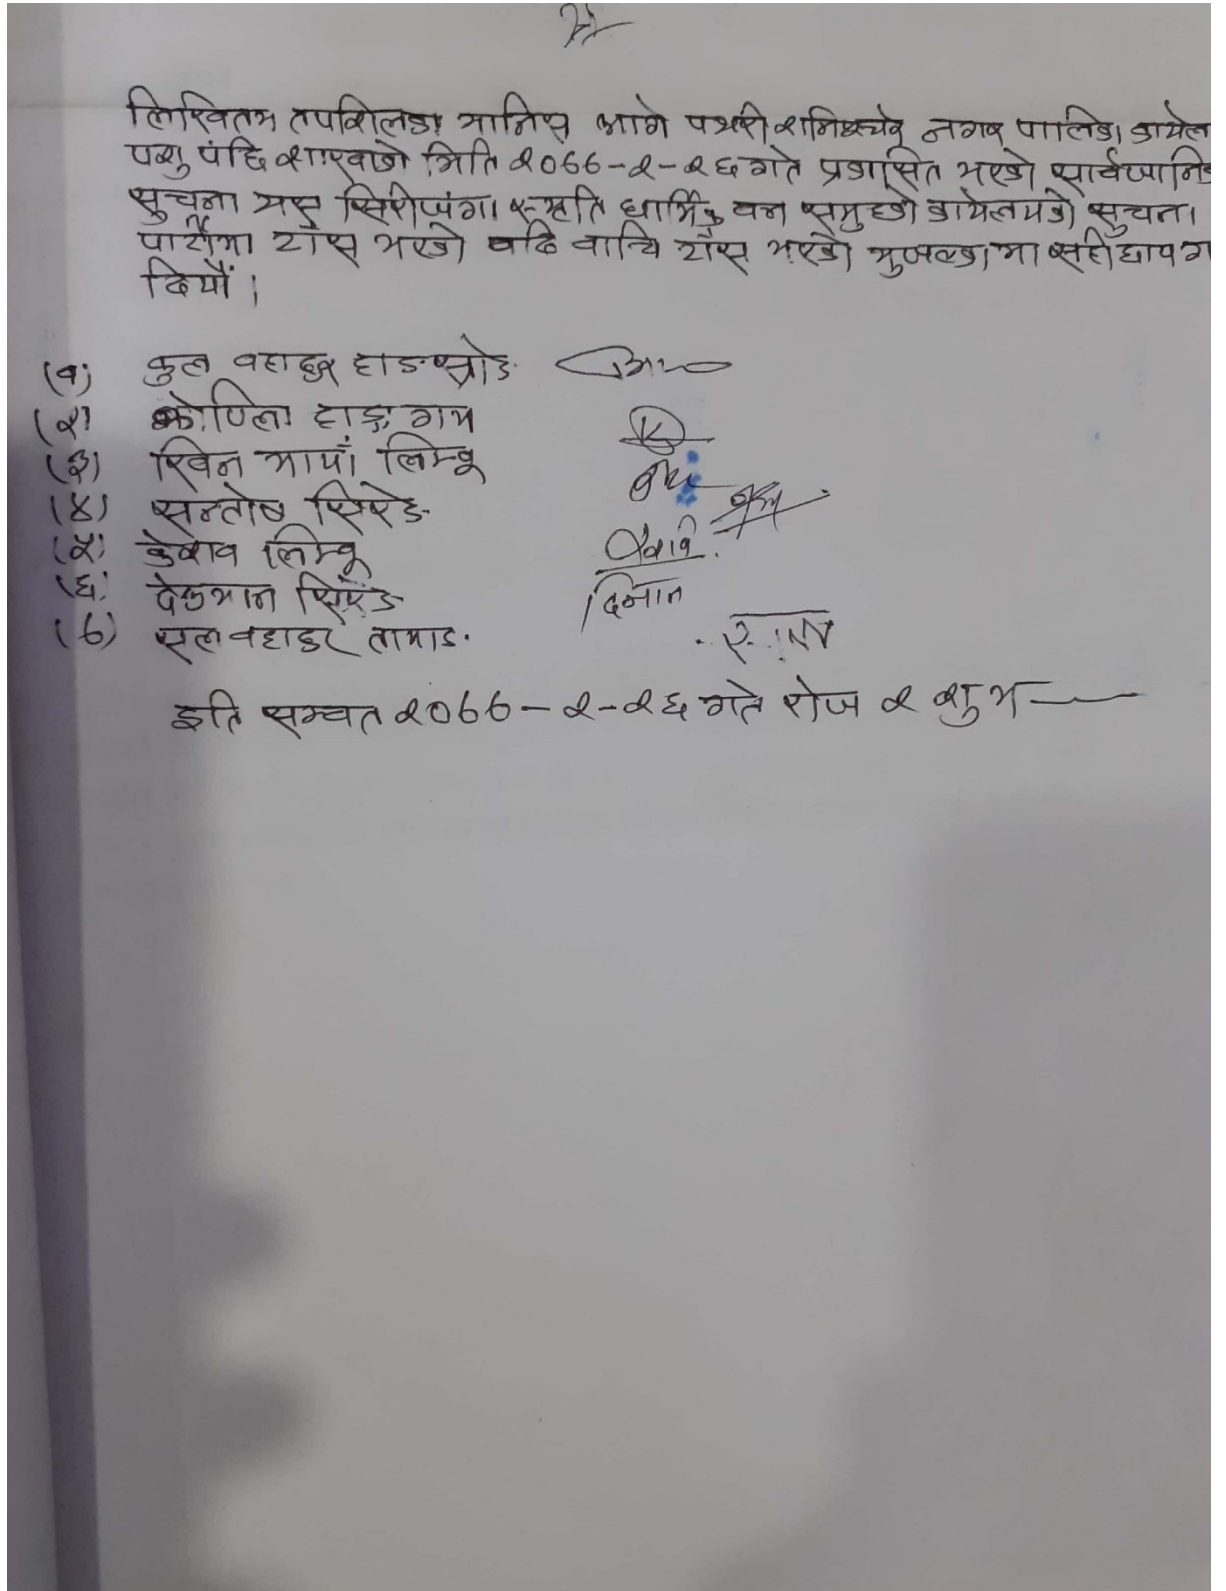 लिखितम तपशिलका मानिस आगे पथरी शनिश्चरे नगर पालिका कार्यल
पशु पंछि शाखाको मिति २०७७-२-२६ गते प्रकासित भएको सार्वजानिक
सुचना यस सिरीजंगा स्मृति धार्मिक वन समुहको कार्यलयको सुचना
पाटीमा टाँस भएको पढि वाचि टाँस भएको मुचुल्का मा सहीछाप ग
दियौं ।
(१) कुल वहादुर हाङस्रोङ
(२) कोपिला हाङगाम
(३) रिवन मायाँ लिम्बू
(४) सन्तोष सिरेङ
(५) केशव लिम्बू
(६) देउमान सिरेङ दिमान
(७) सलवहादुर तामाङ
इति सम्वत २०७७-२-२६ गते रोज २ शुभम